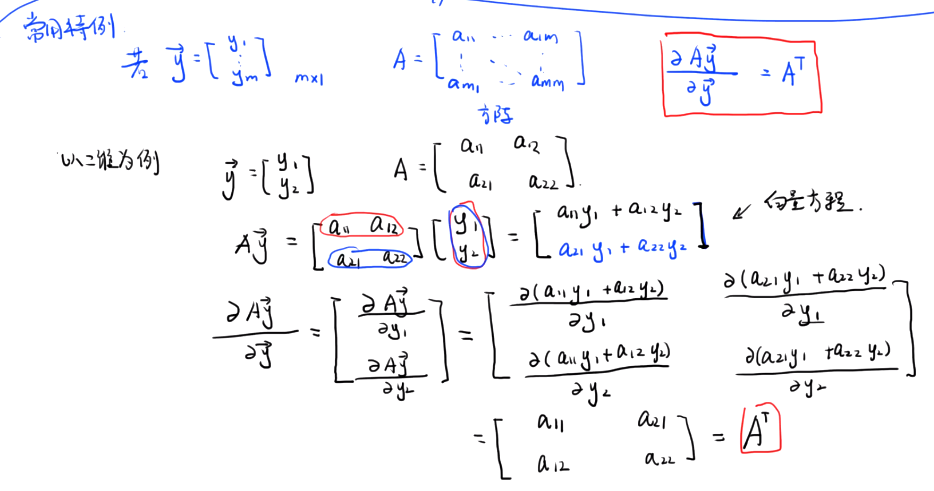 常用特例
若 $\vec{y} = \begin{bmatrix} y_1 \\ \vdots \\ y_m \end{bmatrix}_{m \times 1}$ $A = \begin{bmatrix} a_{11} & \cdots & a_{1m} \\ \vdots & \ddots & \vdots \\ a_{m1} & \cdots & a_{mm} \end{bmatrix}$ $\frac{\partial A\vec{y}}{\partial \vec{y}} = A^T$
方阵
以二维为例 $\vec{y} = \begin{bmatrix} y_1 \\ y_2 \end{bmatrix}$ $A = \begin{bmatrix} a_{11} & a_{12} \\ a_{21} & a_{22} \end{bmatrix}.$
$A\vec{y} = \begin{bmatrix} a_{11} & a_{12} \\ a_{21} & a_{22} \end{bmatrix} \begin{bmatrix} y_1 \\ y_2 \end{bmatrix} = \begin{bmatrix} a_{11} y_1 + a_{12} y_2 \\ a_{21} y_1 + a_{22} y_2 \end{bmatrix}$ ↙ 向量方程.
$\frac{\partial A\vec{y}}{\partial \vec{y}} = \begin{bmatrix} \frac{\partial A\vec{y}}{\partial y_1} \\ \frac{\partial A\vec{y}}{\partial y_2} \end{bmatrix} = \begin{bmatrix} \frac{\partial (a_{11} y_1 + a_{12} y_2)}{\partial y_1} & \frac{\partial (a_{21} y_1 + a_{22} y_2)}{\partial y_1} \\ \frac{\partial (a_{11} y_1 + a_{12} y_2)}{\partial y_2} & \frac{\partial (a_{21} y_1 + a_{22} y_2)}{\partial y_2} \end{bmatrix}$
$= \begin{bmatrix} a_{11} & a_{21} \\ a_{12} & a_{22} \end{bmatrix} = A^T$